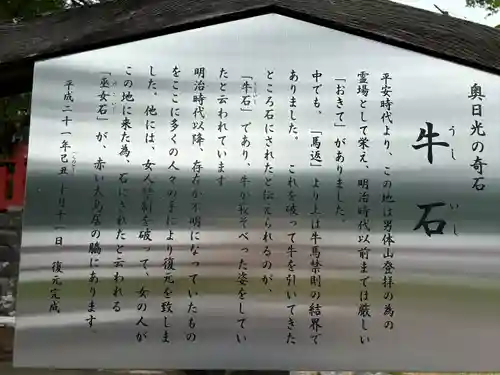 奥日光の奇石
牛石
うし いし
平安時代より、この地は男体山登拝の為の
霊場として栄え、明治時代以前までは厳しい
「おきて」がありました。
中でも、「馬返」より上は牛馬禁制の結界で
ありました。これを破って牛を引いてきた
ところ石にされたと伝えられるのが、
「牛石」であり、牛が寝そべった姿をしてい
たと云われています。
明治時代以降、存在が不明になっていたもの
をここに多くの人々の手により復元を致しま
した。他には、女人禁制を破って、女の人が
この地に来た為、石にされたと云われる
「巫女石」が、赤い大鳥居の脇にあります。
平成二十一年己丑十月十一日 復元完成